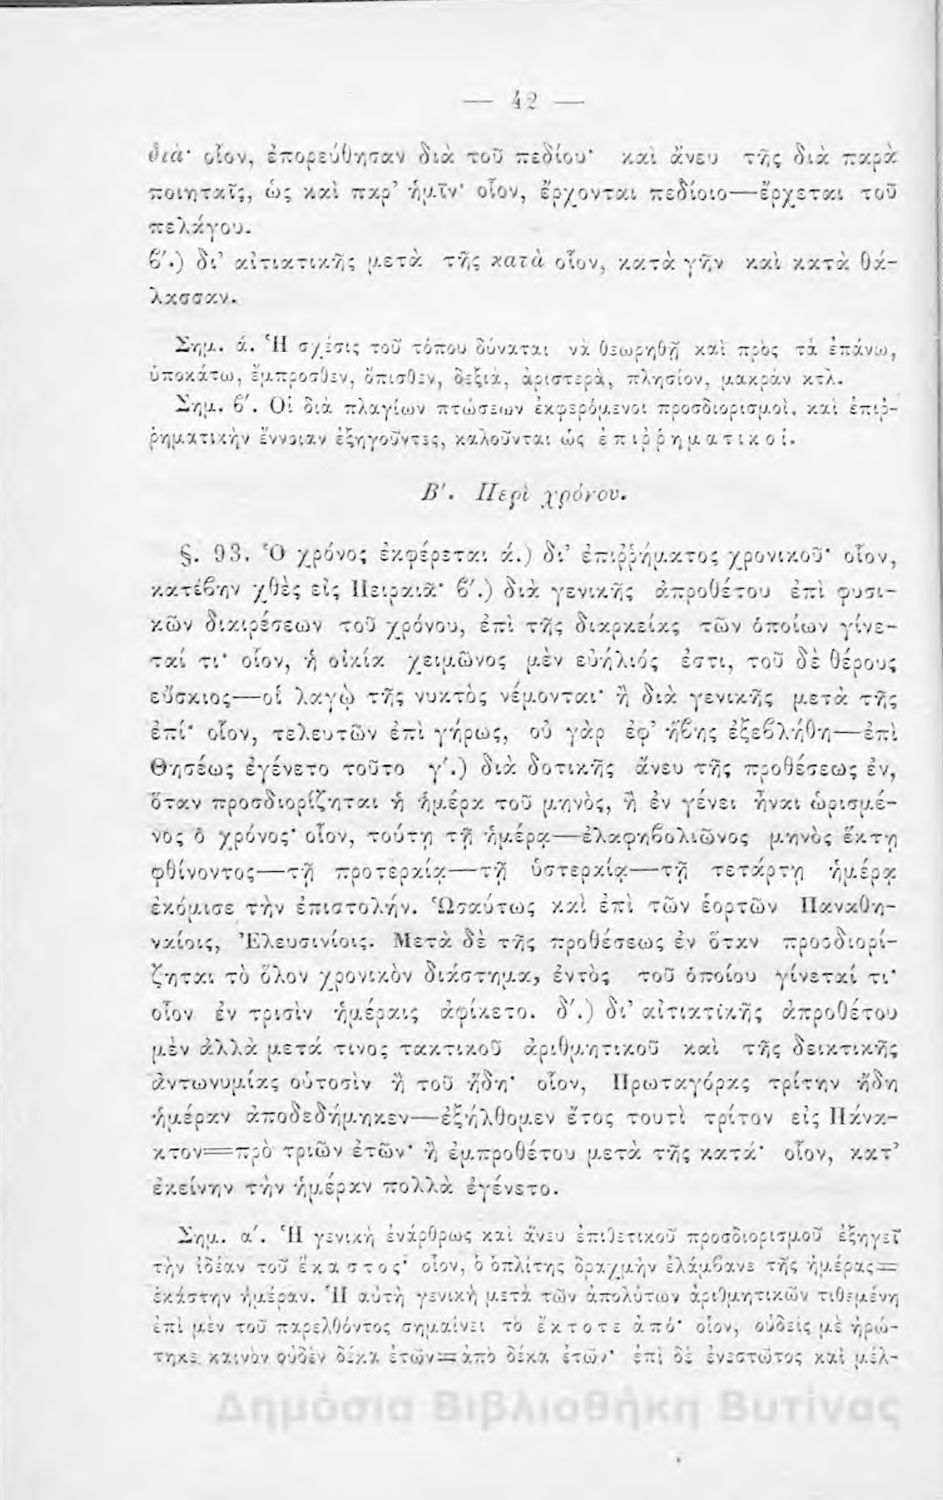 — 42 —
διὰ· οἷον, ἐπορεύθησαν διὰ τοῦ πεδίου· καὶ ἄνευ τῆς διὰ παρὰ
ποιηταῖς, ὡς καὶ παρ’ ἡμῖν· οἷον, ἔρχονται πεδίοιο—ἔρχεται τοῦ
πελάγου.
β′.) δι’ αἰτιατικῆς μετὰ τῆς κατὰ οἷον, κατὰ γῆν καὶ κατὰ θά-
λασσαν.
Σημ. ά. Ἡ σχέσις τοῦ τόπου δύναται νὰ θεωρηθῇ καὶ πρὸς τὰ ἐπάνω,
ὑποκάτω, ἔμπροσθεν, ὄπισθεν, δεξιὰ, ἀριστερὰ, πλησίον, μακρὰν κτλ.
Σημ. β′. Οἱ διὰ πλαγίων πτώσεων ἐκφερόμενοι προσδιορισμοὶ, καὶ ἐπιῤ-
ῥηματικὴν ἔννοιαν ἐξηγοῦντες, καλοῦνται ὡς ἐπιῤῥηματικοί.
Β′. Περὶ χρόνου.
§. 93. Ὁ χρόνος ἐκφέρεται ά.) δι’ ἐπιῤῥήματος χρονικοῦ· οἷον,
κατέβην χθὲς εἰς Πειραιᾶ· β′.) διὰ γενικῆς ἀπροθέτου ἐπὶ φυσι-
κῶν διαιρέσεων τοῦ χρόνου, ἐπὶ τῆς διαρκείας τῶν ὁποίων γίνε-
ταί τι· οἷον, ἡ οἰκία χειμῶνος μὲν εὐήλιός ἐστι, τοῦ δὲ θέρους
εὔσκιος—οἱ λαγῲ τῆς νυκτὸς νέμονται· ἢ διὰ γενικῆς μετὰ τῆς
ἐπί· οἷον, τελευτῶν ἐπὶ γήρως, οὐ γὰρ ἐφ’ ἥβης ἐξεβλήθη—ἐπὶ
Θησέως ἐγένετο τοῦτο γ′.) διὰ δοτικῆς ἄνευ τῆς προθέσεως ἐν,
ὅταν προσδιορίζηται ἡ ἡμέρα τοῦ μηνὸς, ἢ ἐν γένει ἦναι ὡρισμέ-
νος ὁ χρόνος· οἷον, τούτῃ τῇ ἡμέρᾳ—ἐλαφηβολιῶνος μηνὸς ἕκτῃ
φθίνοντος—τῇ προτεραίᾳ—τῇ ὑστεραίᾳ—τῇ τετάρτῃ ἡμέρᾳ
ἐκόμισε τὴν ἐπιστολήν. Ὡσαύτως καὶ ἐπὶ τῶν ἑορτῶν Παναθη-
ναίοις, Ἐλευσινίοις. Μετὰ δὲ τῆς προθέσεως ἐν ὅταν προσδιορί-
ζηται τὸ ὅλον χρονικὸν διάστημα, ἐντὸς τοῦ ὁποίου γίνεταί τι·
οἷον ἐν τρισὶν ἡμέραις ἀφίκετο. δ′.) δι’ αἰτιατικῆς ἀπροθέτου
μὲν ἀλλὰ μετά τινος τακτικοῦ ἀριθμητικοῦ καὶ τῆς δεικτικῆς
ἀντωνυμίας οὑτοσὶν ἢ τοῦ ἤδη· οἷον, Πρωταγόρας τρίτην ἤδη
ἡμέραν ἀποδεδήμηκεν—ἐξήλθομεν ἔτος τουτὶ τρίτον εἰς Πάνα-
κτον=πρὸ τριῶν ἐτῶν· ἢ ἐμπροθέτου μετὰ τῆς κατά· οἷον, κατ’
ἐκείνην τὴν ἡμέραν πολλὰ ἐγένετο.
Σημ. α′. Ἡ γενικὴ ἐνάρθρως καὶ ἄνευ ἐπιθετικοῦ προσδιορισμοῦ ἐξηγεῖ
τὴν ἰδέαν τοῦ ἕκαστος· οἷον, ὁ ὁπλίτης δραχμὴν ἐλάμβανε τῆς ἡμέρας=
ἑκάστην ἡμέραν. Ἡ αὐτὴ γενικὴ μετὰ τῶν ἀπολύτων ἀριθμητικῶν τιθεμένη
ἐπὶ μὲν τοῦ παρελθόντος σημαίνει τὸ ἔκτοτε ἀπό· οἷον, οὐδεὶς μὲ ἠρώ-
τηκε καινὸν οὐδὲν δέκα ἐτῶν=ἀπὸ δέκα ἐτῶν· ἐπὶ δὲ ἐνεστῶτος καὶ μέλ-
Δημόσια Βιβλιοθήκη Βυτίνας